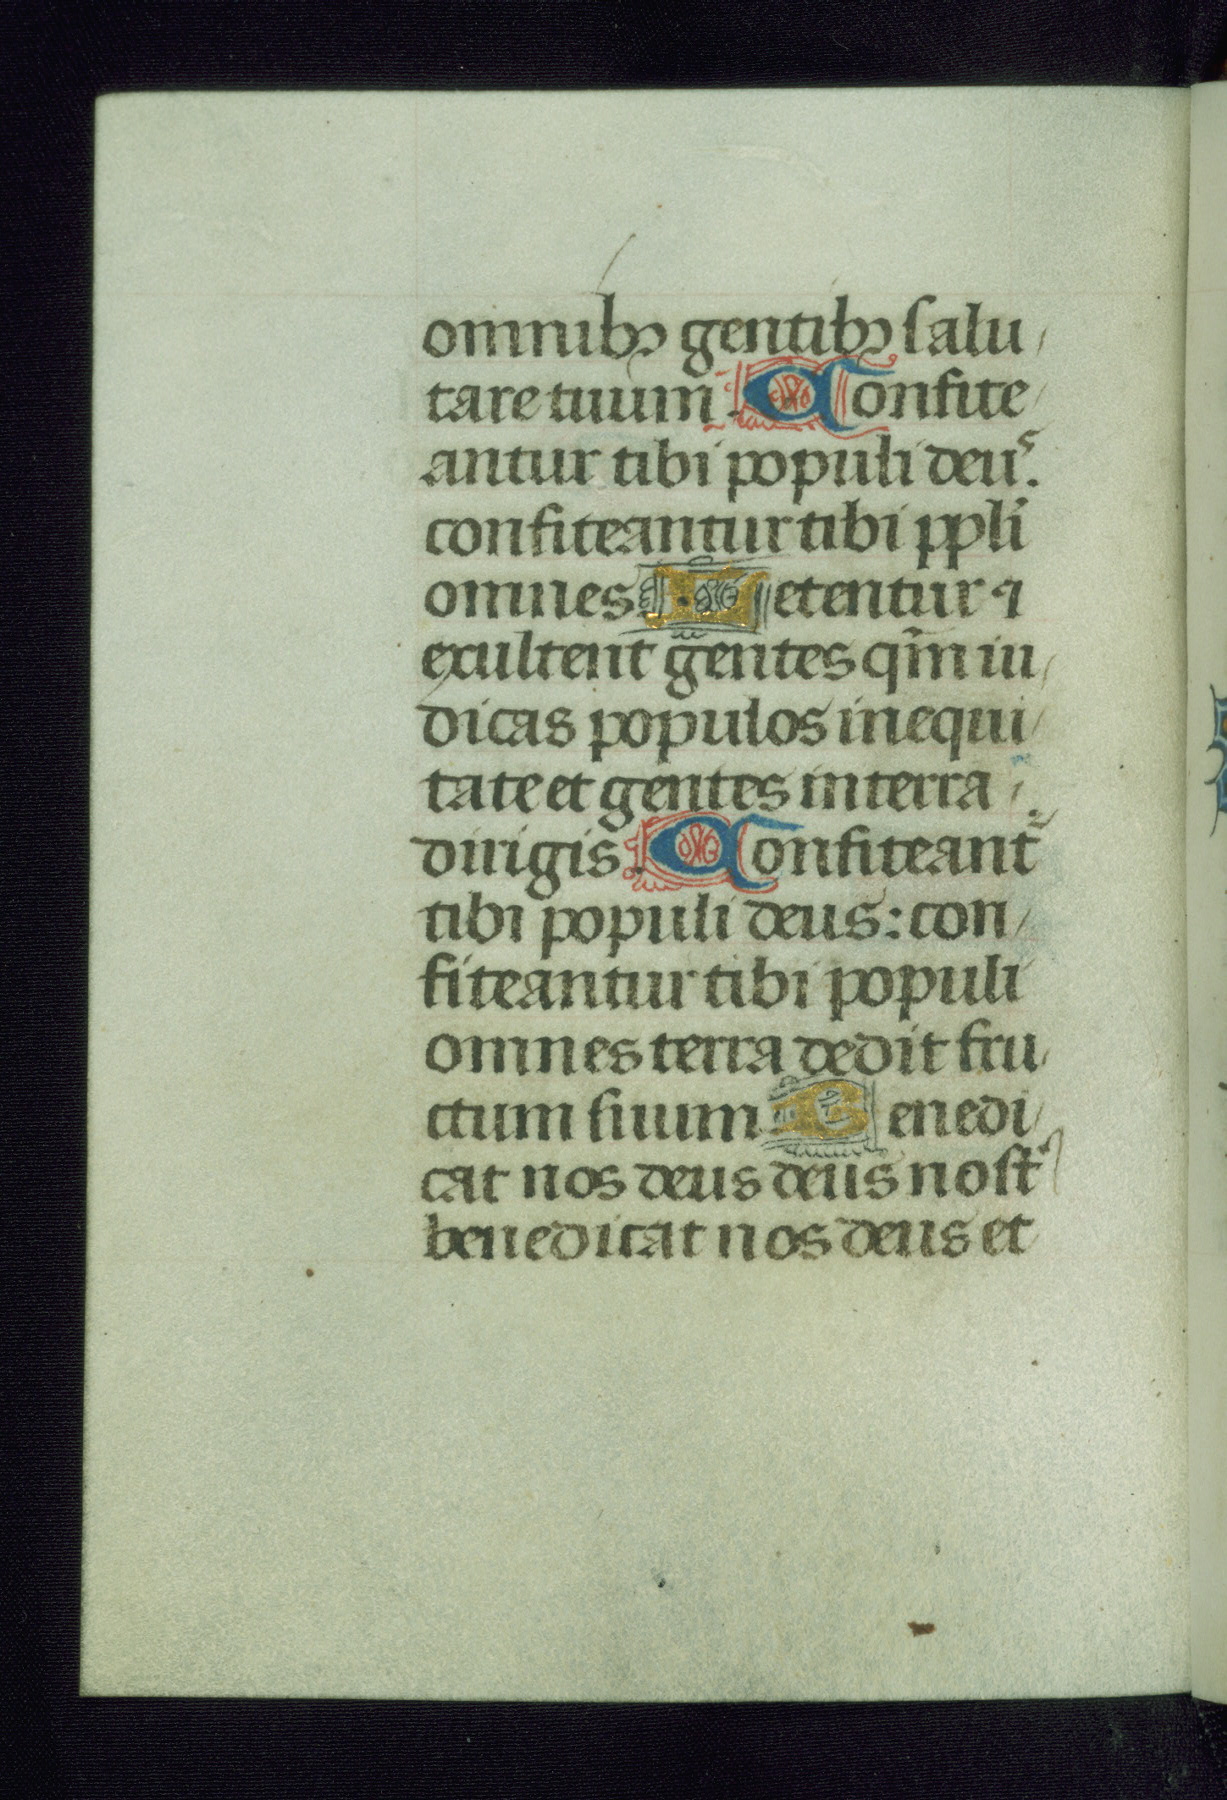 omnibꝫ gentibꝫ ſalu
tare tuum. Confite
antur tibi populi deuˢ.
confiteantur tibi pp̄li
omnes. Letentur ⁊
exultent gentes qm̄ iu
dicas populos in equi
tate et gentes in terra
dirigis. Confiteant᷑
tibi populi deus: con
fiteantur tibi populi
omnes terra dedit fru
ctum suum Benedi
cat nos deus deus noſt᷑
benedicat nos deus et